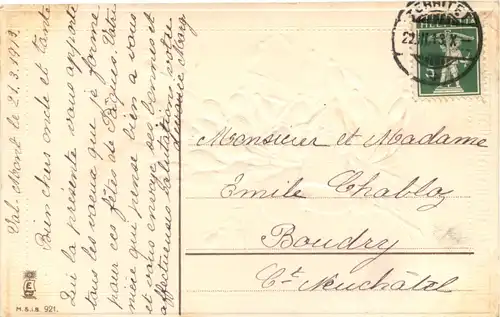 Val-Mont le 21.3.1913.
Bien chers oncle et tante
Qui la présente vous apporte
tous les voeux que je forme
pour ces fêtes de Pâques. Votre
nièce qui pense bien à vous
et vous envoye ses bonnes et
affectueuses salutations. votre
TERRITET
5
Monsieur et Madame
Émile Chabloz
Boudry
Ct. Neuchâtel
M.S.i.B. 921.